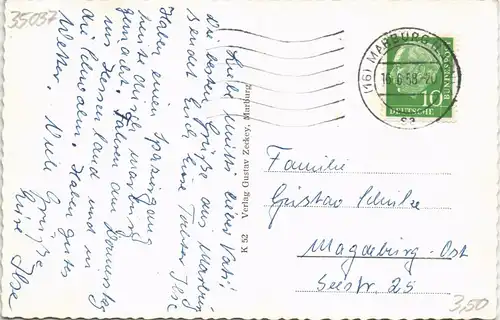 35037
Liebe Mutti, lieber Vati!
Die besten Grüße aus Marburg
sendet Euch Eure Tochter Ilse
Haben einen Spaziergang
hinter durch Marburg
gemacht. Fahren am Donnerstag
ins Hessenland und in
die Schwalm. Haben gutes
Wetter. Viele Grüße
Eure Ilse
K 52 Verlag Gustav Zeckey, Marburg
(16) MARBURG
16.6.58-20
10
DEUTSCHE
BUNDESPOST
Familie
Gustav Schulze
Magdeburg-Ost
Seestr. 25
3,50